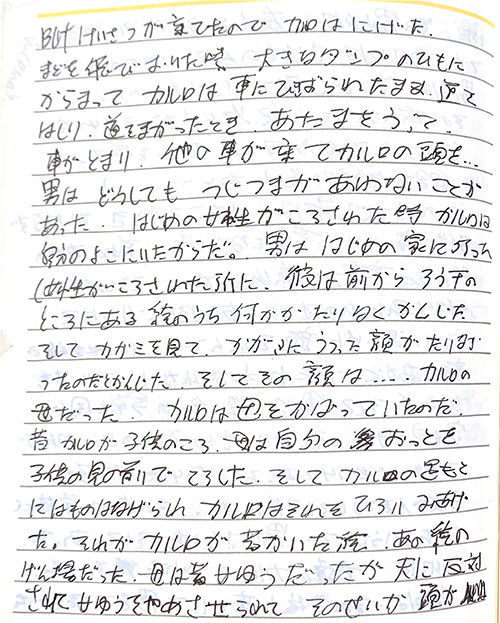 But けいさつが来てたので カルロはにげた.
まどを飛びおりた時 大きなダンプのひもに
からまって カルロは車にひきずられたまま、道を
はしり. 道をまがったとき. あたまをうって.
車がとまり. 他の車が来てカルロの頭を…
男は どうしても つじつまがあわないことが
あった. はじめの女性がころされた時 カルロは
自分のよこにいたからだ。 男は はじめの家に
(女性がころされた所に. 彼は前から ろう下の
ところにある絵のうち何かがたりなくかんじた
そしてカガミを見て. かがみにうつった顔がたりなか
ったのだとかんじた. そしてその顔は.... カルロの
母だった. カルロは母をかばっていたのだ.
昔 カルロが子供のころ. 母は自分の おっとを
子供の見の前でころした. そしてカルロの足もと
にはものはなげられ カルロはそれをひろい みあげ
た. それがカルロが昔かいた絵. あの絵の
げん場だった. 母は昔女ゆうだったが 夫に反対
されて女ゆうをやめさせられて そのせいか 頭が